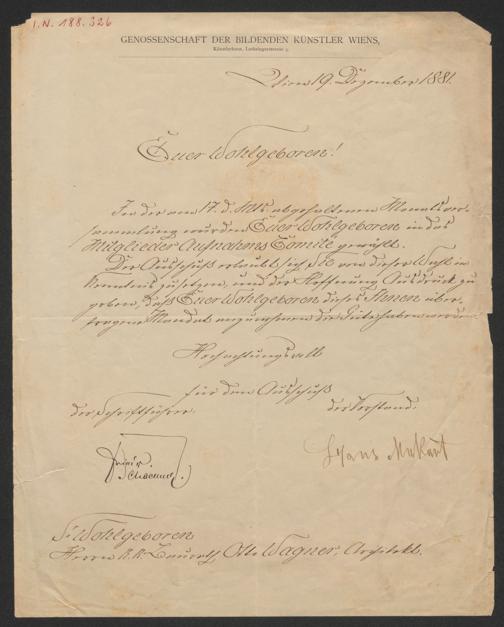 I.N. 188.326
GENOSSENSCHAFT DER BILDENDEN KÜNSTLER WIENS,
Künstlerhaus, Lothringerstrasse 9.
Wien 19. Dezember 1881.
Euer Wohlgeboren!
In der am 17. d. Mts. abgehaltenen Monatsver-
sammlung wurden Euer Wohlgeboren in das
Mitglieder-Aufnahms-Comité gewählt.
Der Ausschuß erlaubt sich, Sie von dieser Wahl in
Kenntnis zu setzen, und der Hoffnung Ausdruck zu
geben, daß Euer Wohlgeboren dieses Ihnen über-
tragene Mandat anzunehmen die Güte haben werden.
Hochachtungsvoll
für den Ausschuß
der Schriftführer. der Vorstand.
Hans Makart
Sr Wohlgeboren
Herrn K.K. Otto Wagner, Architekt.